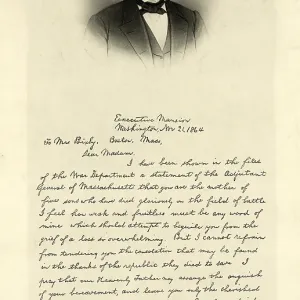 Executive Mansion
Washington, Nov 21, 1864
To Mrs Bixby, Boston, Mass,
Dear Madam:
I have been shown in the files
of the War Department a statement of the Adjutant
General of Massachusetts that you are the mother of
five sons who have died gloriously on the field of battle
I feel how weak and fruitless must be any word of
mine which should attempt to beguile you from the
grief of a loss so overwhelming. But I cannot refrain
from tendering you the consolation that may be found
in the thanks of the republic they died to save. I
pray that our Heavenly Father may assuage the anguish
of your bereavement, and leave you only the cherished